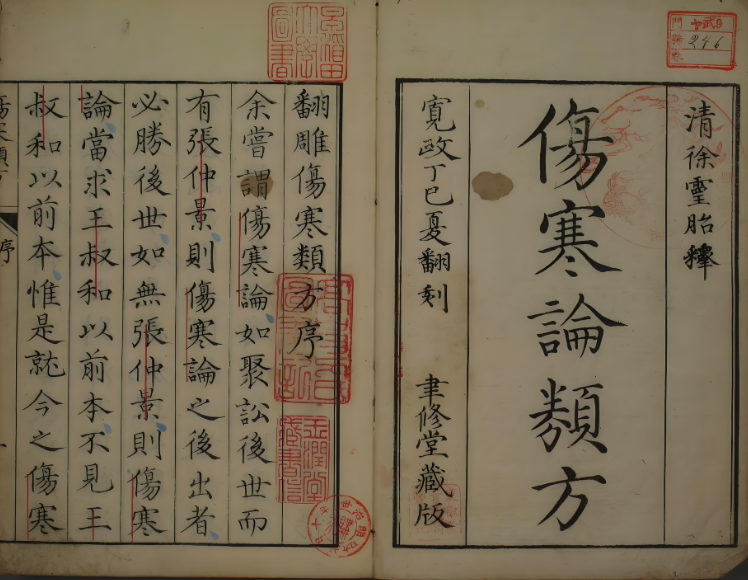 清徐靈胎釋
傷寒論類方
寛政丁巳夏翻刻 聿修堂藏版
246
翻雕傷寒類方序
余嘗謂傷寒論如聚訟後世而
有張仲景則傷寒論之後出者
必勝後世如無張仲景則傷寒
論當求王叔和以前本不見王
叔和以前本惟是就今之傷寒
序